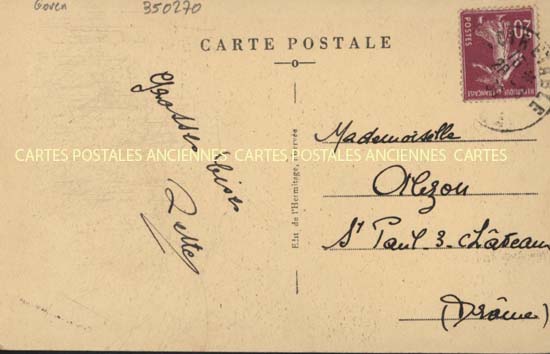 Goven
350270
CARTE POSTALE
20
POSTES
REPUBLIQUE FRANÇAISE
Grosses bises
Zette
Edit. de l'Hermitage, 
Mademoiselle
St Paul-3-Châteaux
(Drôme)
CARTES POSTALES ANCIENNES CARTES POSTALES ANCIENNES CARTES